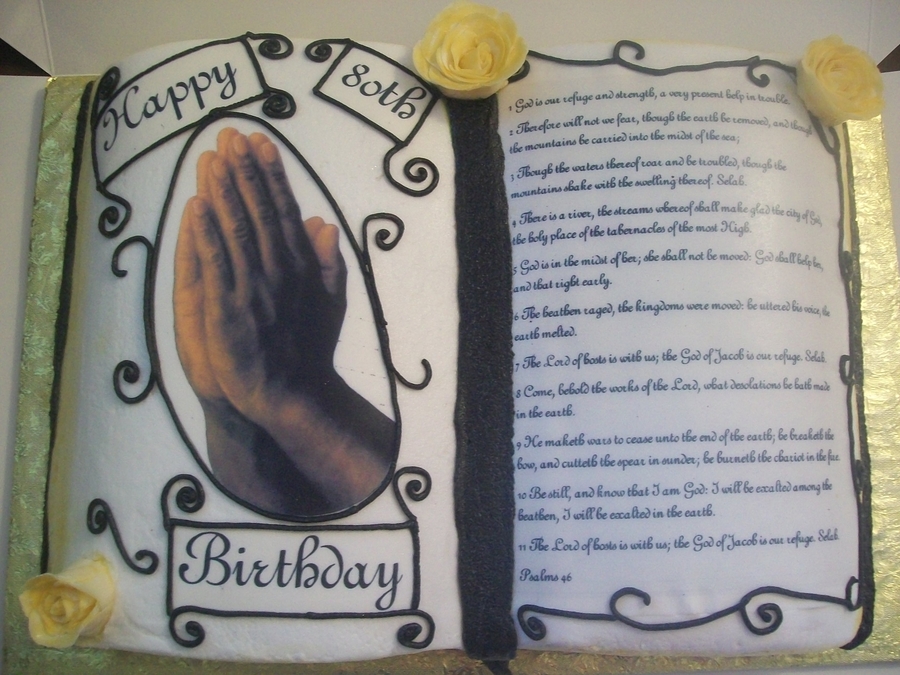 Happy
80th
Birthday
1 God is our refuge and strength, a very present help in trouble.
2 Therefore will not we fear, though the earth be removed, and though
the mountains be carried into the midst of the sea;
3 Though the waters thereof roar and be troubled, though the
mountains shake with the swelling thereof. Selah.
4 There is a river, the streams whereof shall make glad the city of God,
the holy place of the tabernacles of the most High.
5 God is in the midst of her; she shall not be moved: God shall help her,
and that right early.
6 The heathen raged, the kingdoms were moved: he uttered his voice, the
earth melted.
7 The Lord of hosts is with us; the God of Jacob is our refuge. Selah.
8 Come, behold the works of the Lord, what desolations he hath made
in the earth.
9 He maketh wars to cease unto the end of the earth; he breaketh the
bow, and cutteth the spear in sunder; he burneth the chariot in the fire.
10 Be still, and know that I am God: I will be exalted among the
heathen, I will be exalted in the earth.
11 The Lord of hosts is with us; the God of Jacob is our refuge. Selah.
Psalms 46